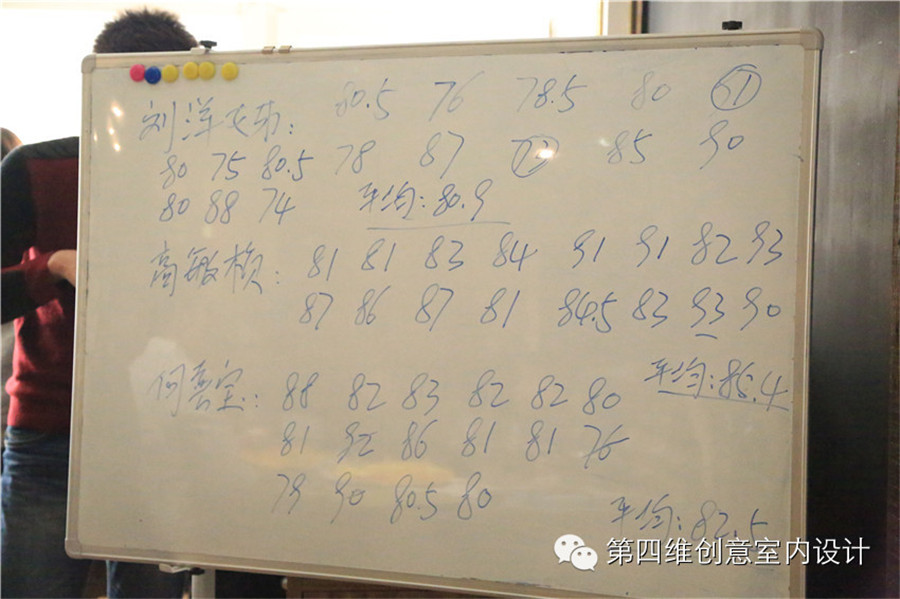 80.5 76 78.5 80
刘洋
80 75 80.5 78 87 85 90
80 88 74 平均:80.9
高敏 : 81 81 83 84 91 91 82 93
87 86 87 81 84.5 83 93 90
何 宝: 88 82 83 82 82 80 平均:86.4
81 92 86 81 81 76
79 90 80.5 80
平均:82.5
第四维创意室内设计